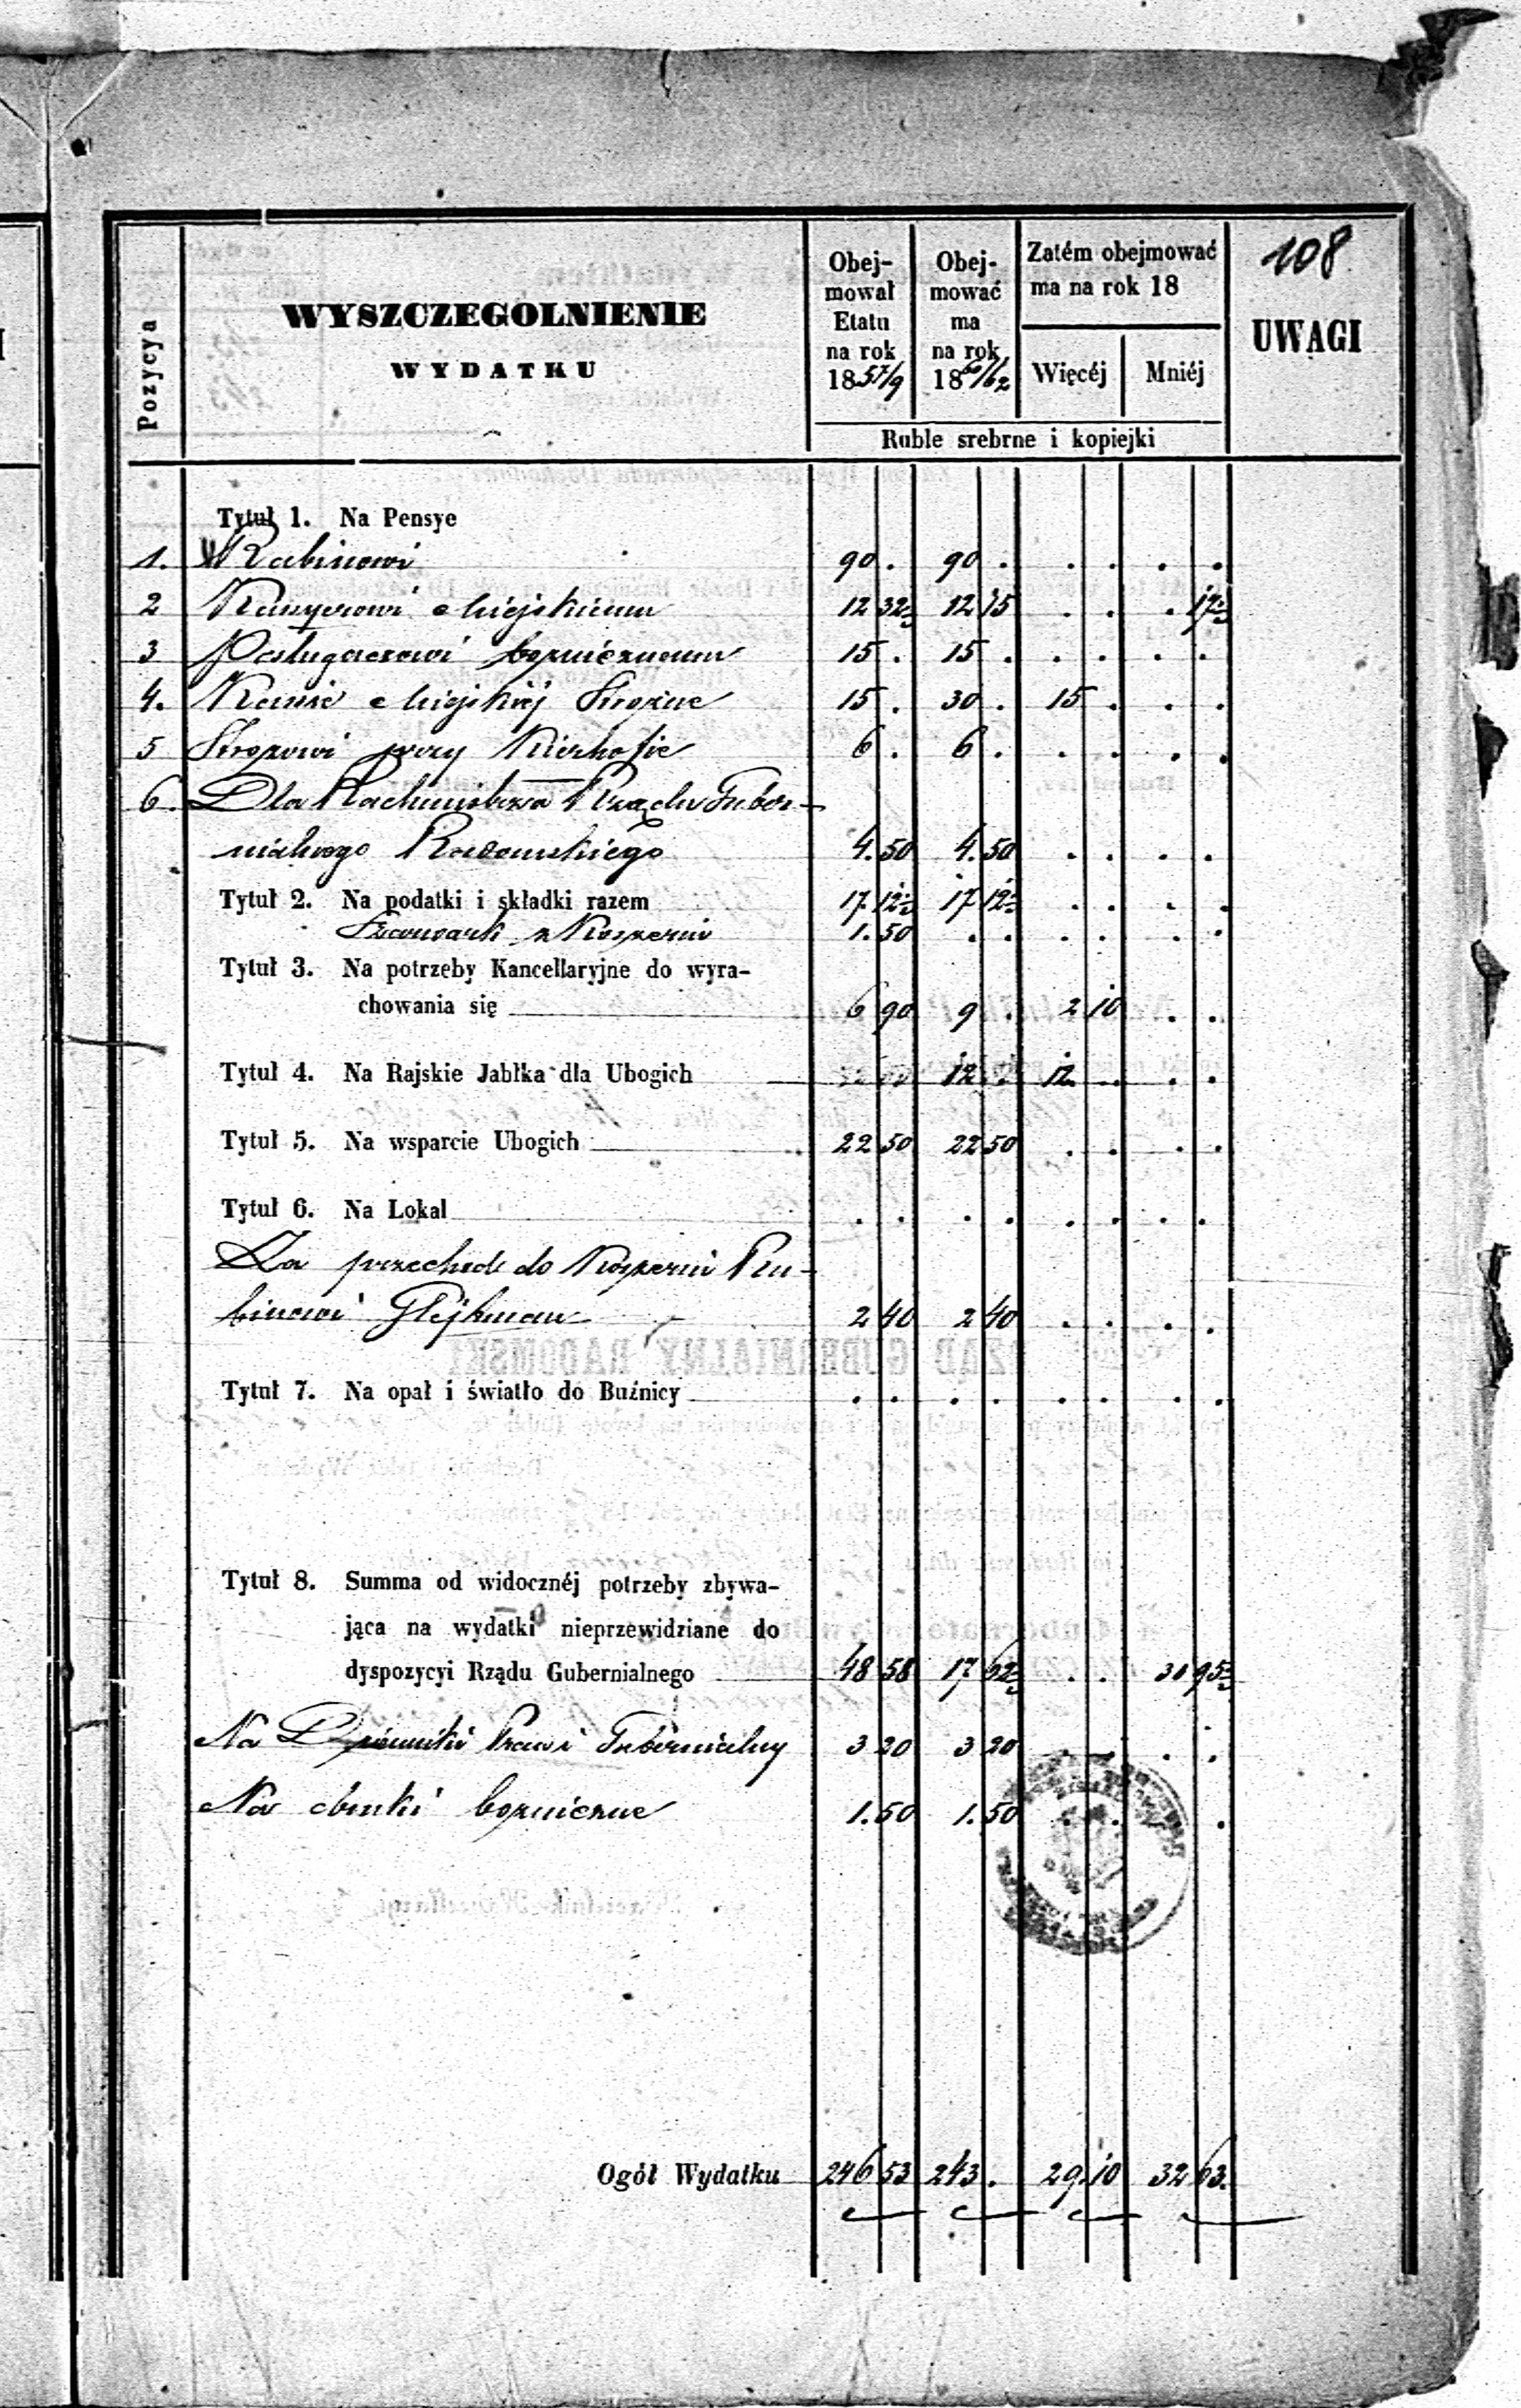 108
Pozycya
WYSZCZEGOLNIENIE
WYDATKU
Obej-
mował
Etatu
na rok
1857/9
Obej-
mować
ma
na rok
1860/62
Zatém obejmować
ma na rok 18
Więcéj
Mniéj
UWAGI
Ruble srebrne i kopiejki
Tytuł 1. Na Pensye
1. Rabinowi 90 . 90 . . . . .
2 Kassyerowi Miejskiemu 12 32½ 12 15 . . . 17½
3 Posługaczowi bożnicznemu 15 . 15 . . . . .
4. Kassie Miejskiéj 15 . 30 . 15 . . .
5 Stróżowi przy Kierkofie 6 . 6 . . . . .
6. Dla Rachmistrza Rządu Guber-
nialnego Radomskiego 4.50 4.50 . . . .
Tytuł 2. Na podatki i składki razem 17 12½ 17 12½ . . . .
Szarwark z 1.50 . . . . . .
Tytuł 3. Na potrzeby Kancellaryjne do wyra-
chowania się 6 90 9 . 2 10 . .
Tytuł 4. Na Rajskie Jabłka dla Ubogich 12 . 12 . . .
Tytuł 5. Na wsparcie Ubogich 22 50 22 50 . . . .
Tytuł 6. Na Lokal . . . . . . . .
Za przechod do
Glejkman 2 40 2 40 . . . .
Tytuł 7. Na opał i światło do Buźnicy . . . . . . . .
Tytuł 8. Summa od widocznéj potrzeby zbywa-
jąca na wydatki nieprzewidziane do
dyspozycyi Rządu Gubernialnego 48 58 17 62½ . . 30 95½
Na Dziennik Praw i Gubernialny 3 20 3 20 . . . .
Na druki bożniczne 1.50 1.50 . . .
Ogół Wydatku 246 53 243 . 29.10 32 63.